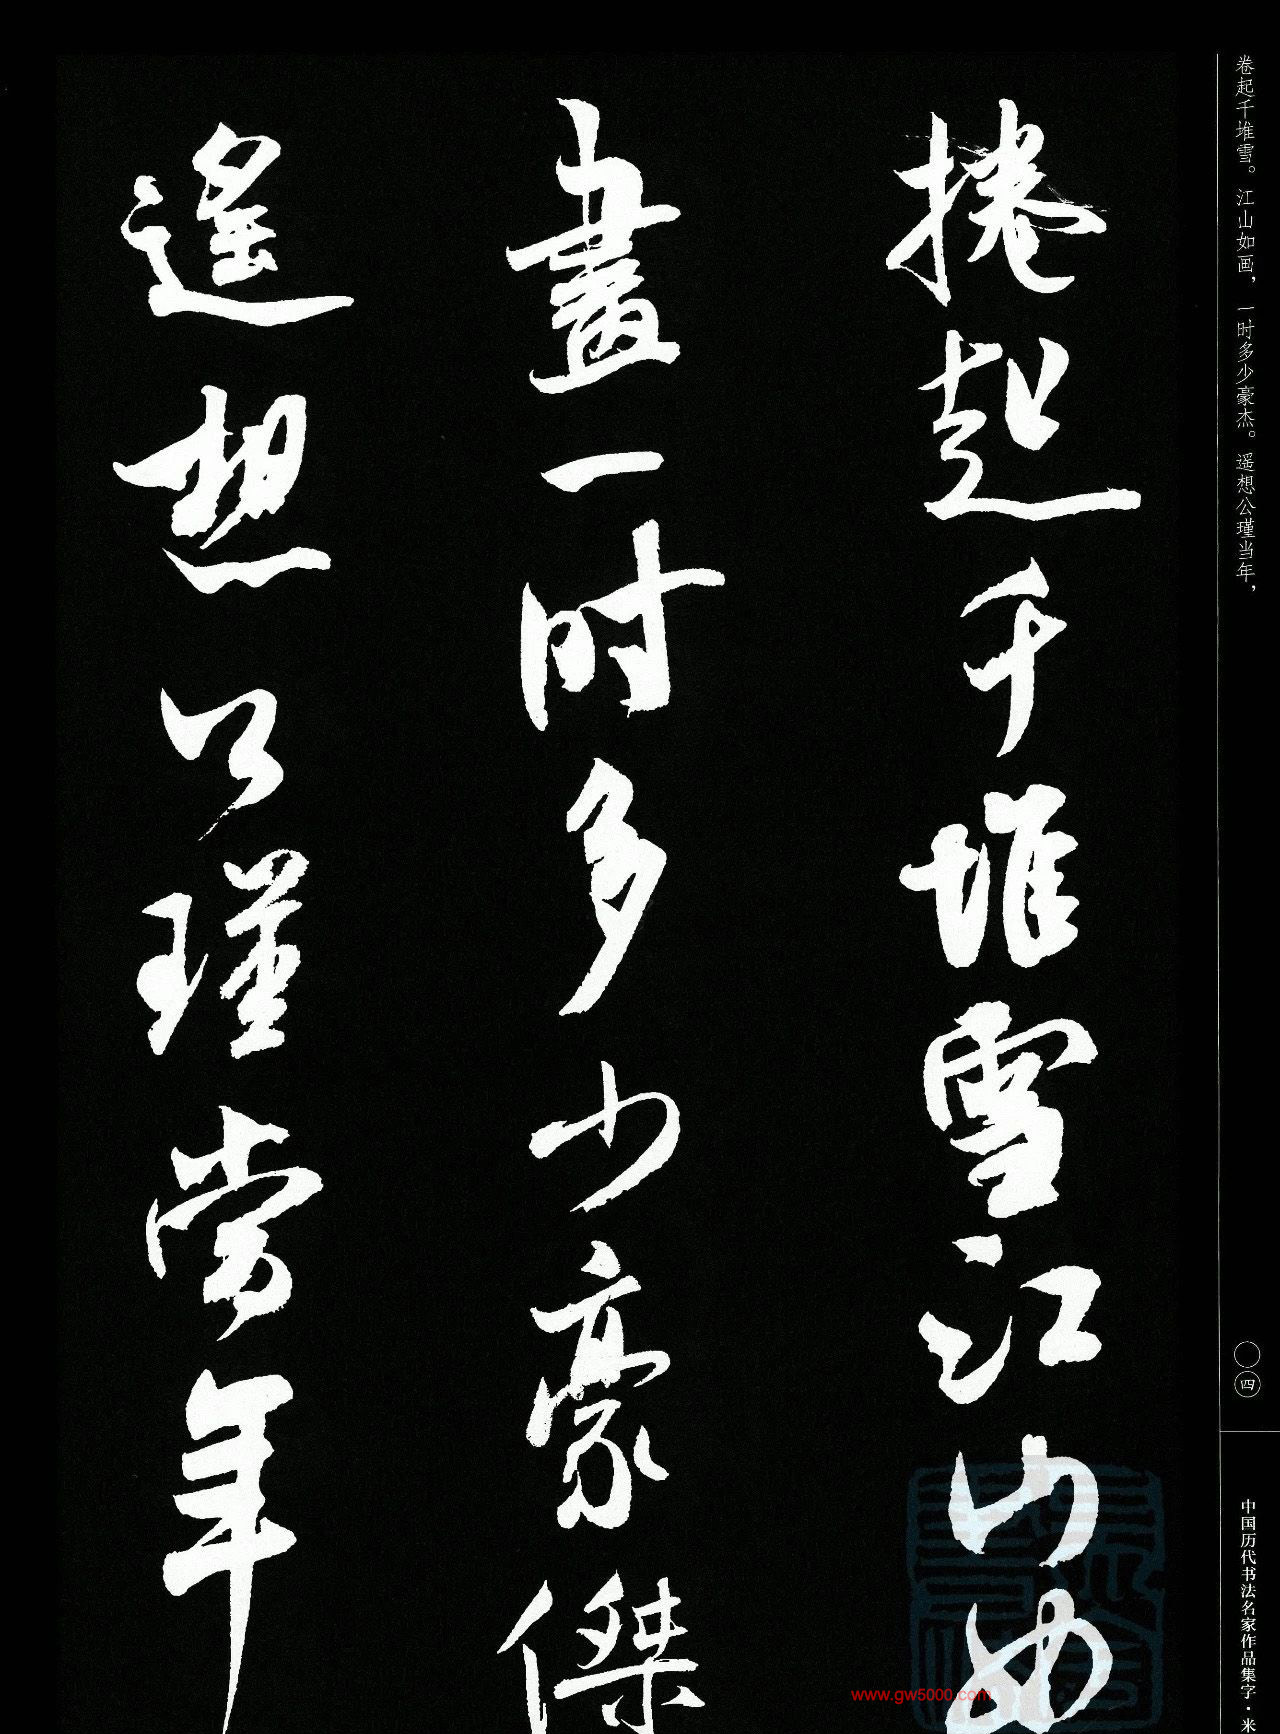 卷起千堆雪。江山如画，一时多少豪杰。遥想公瑾当年，
捲起千堆雪江山如
畫一时多少豪傑
遥想公瑾當年
四
中国历代书法名家作品集字·米
www.gw5000.com